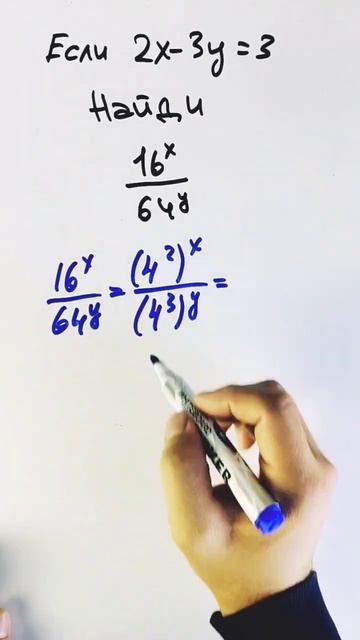 Если 2x-3y=3
Найди
16^x
64^y
16^x/64^y = (4^2)^x/(4^3)^y =